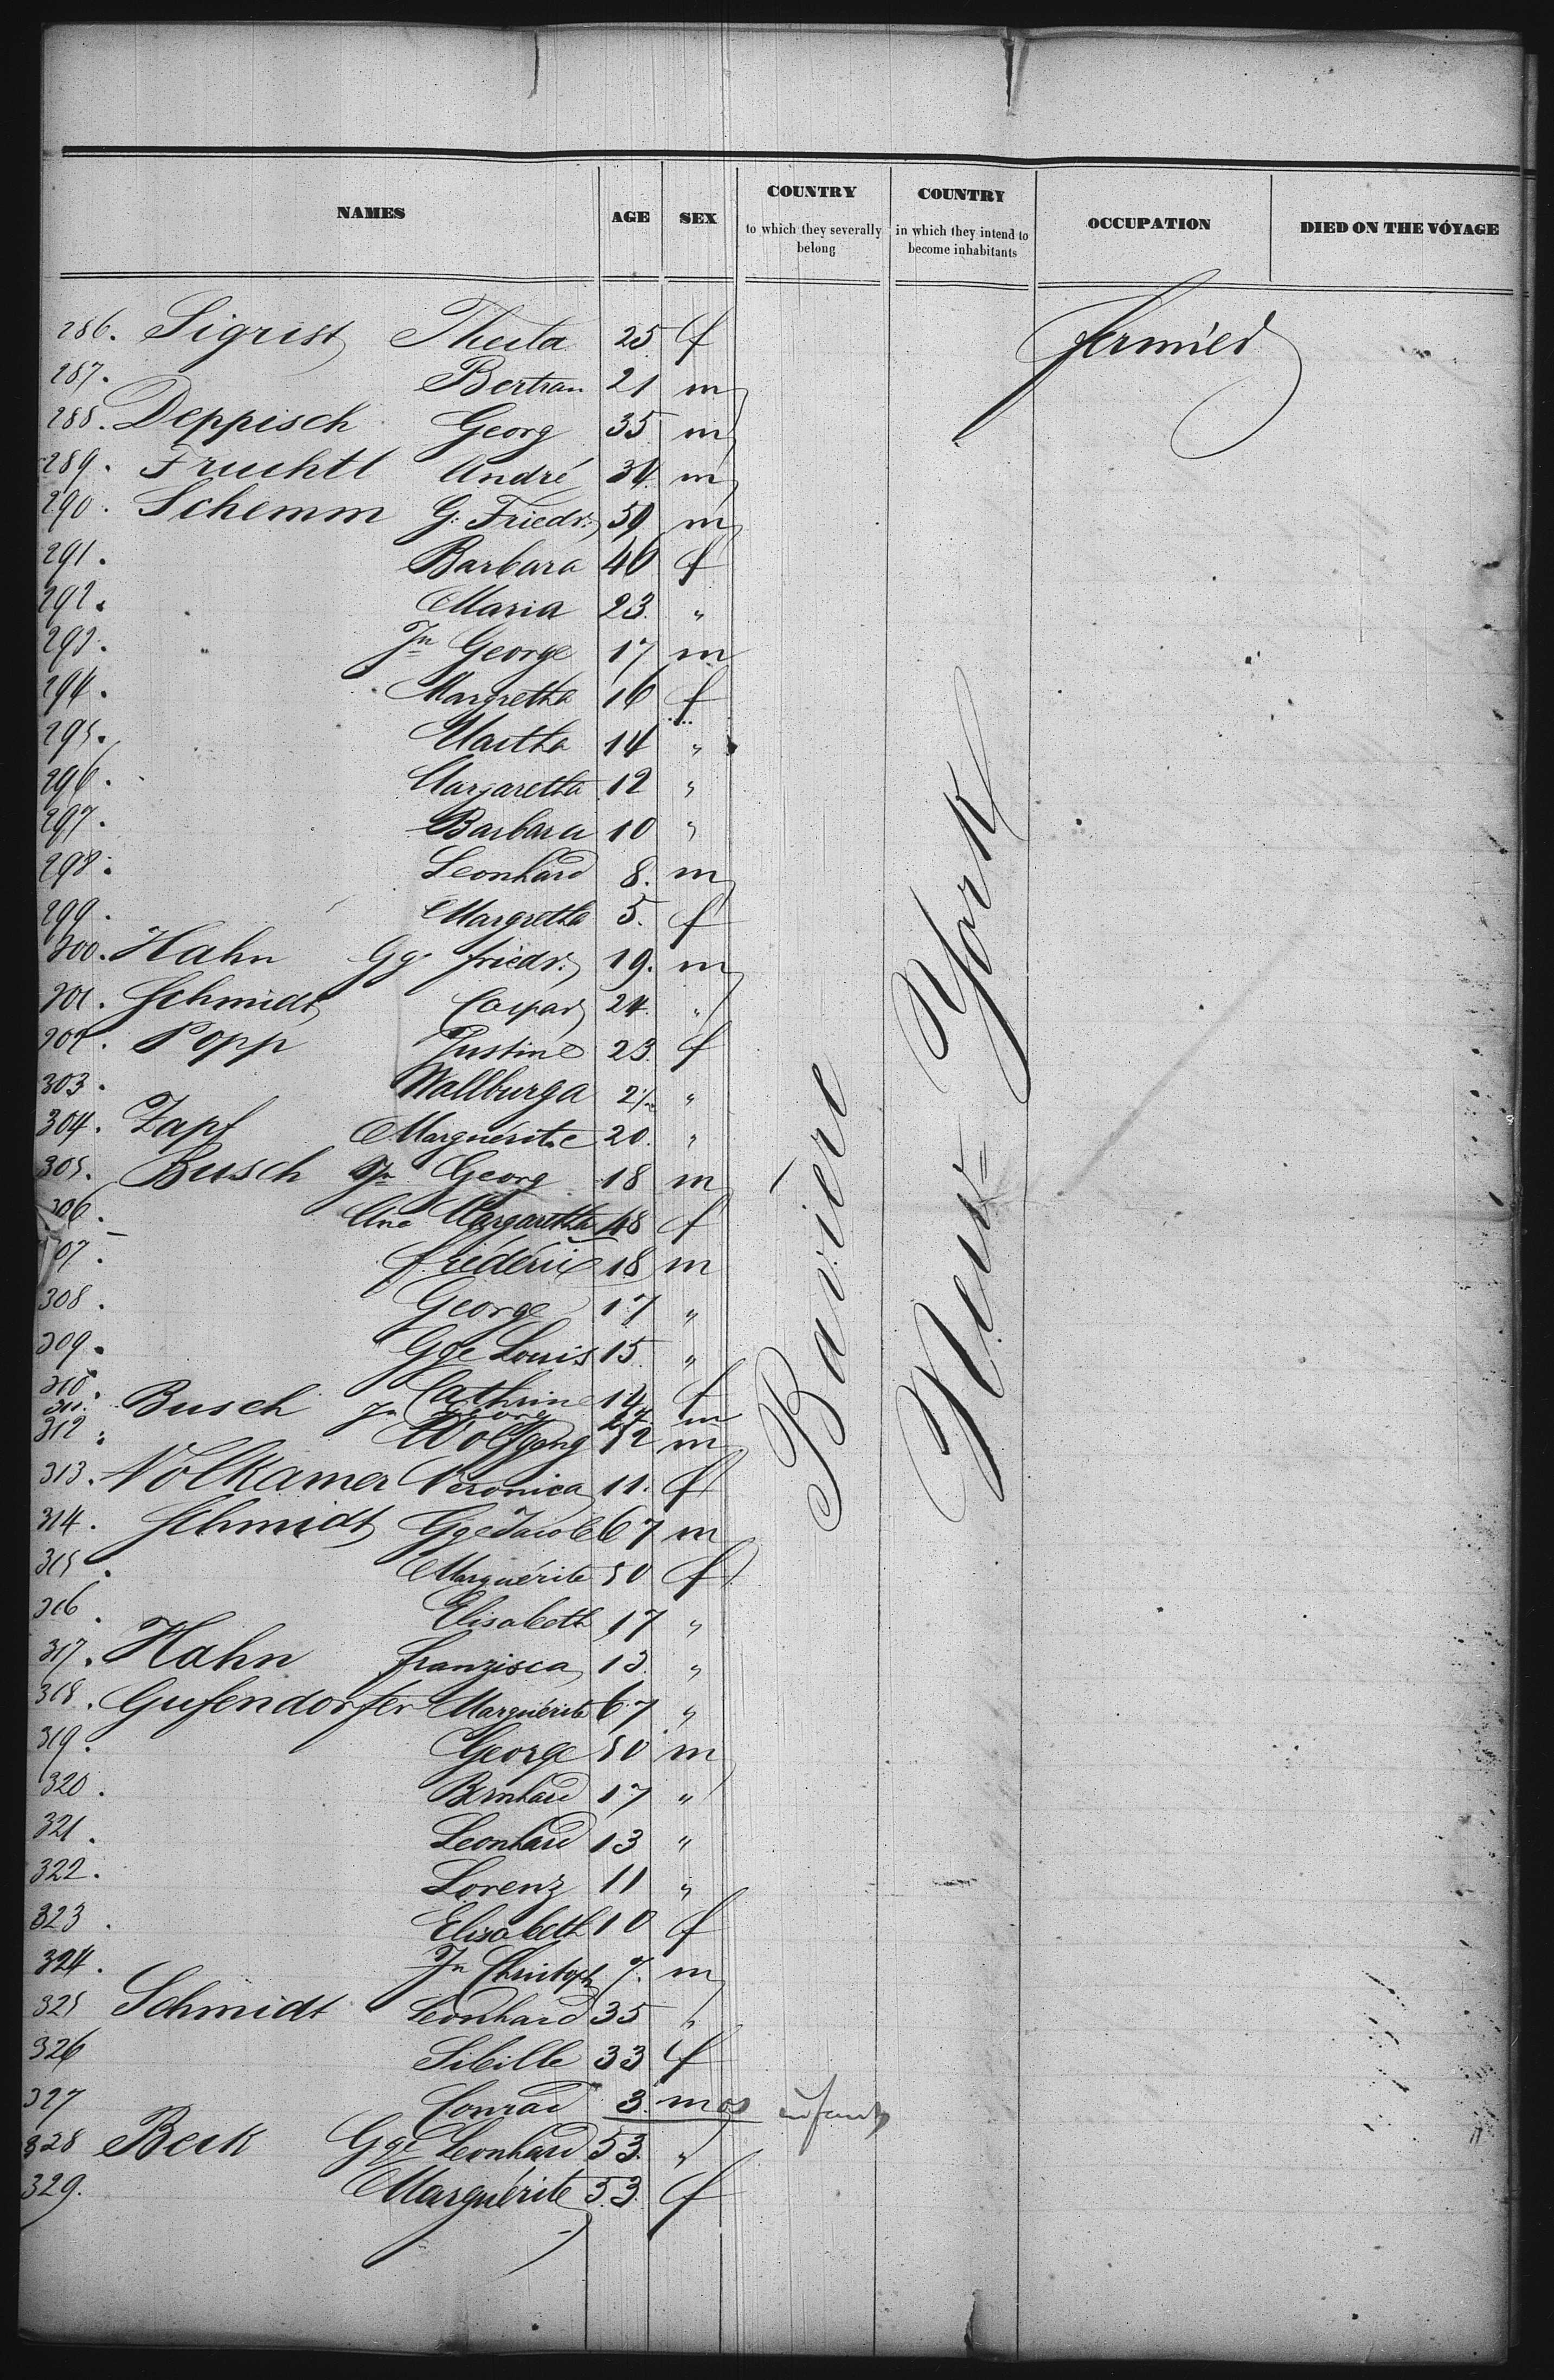 NAMES AGE SEX COUNTRY to which they severally belong COUNTRY in which they intend to become inhabitants OCCUPATION DIED ON THE VOYAGE
286. Sigrist Thecla 25 f
287. Bertran 21 m
288. Deppisch Georg 35 m
289. Fruchtl André 34 m
290. Schemm G. Friedr. 59 m
291. Barbara 46 f
292. Maria 23 "
293. Jn George 17 m
294. Margretha 16 f
295. Martha 14 "
296. Margaretha 12 "
297. Barbara 10 "
298. Leonhard 8. m
299. Margretha 5. f
300. Hahn Gg friedr. 19. m
301. Schmidt Caspar 24. "
302. Popp Justine 23. f
303. Wallburga "
304. Zapf Marguérithe 20. "
305. Busch Jn Georg 18 m
306. Ane Margaretha 48 f
307. fréderic 18 m
308. George 17 "
309. Gge Louis 15. "
310. Cathrine 14 f
311. Busch Jn George m
312. Wolfgang 12 m
313. Volkamer Veronica 11. f
314. Schmidt Gge Jacob 67 m
315. Marguérite 50 f
316. Elisabeth 17 "
317. Hahn franzisca 13. "
318. Gufendorfer Marguérite 67 "
319. George 50 m
320. Bernhard 17 "
321. Leonhard 13 "
322. Lorenz 11 "
323. Elisabeth 10 f
324. Jn Christoph 7. m
325 Schmidt Leonhard 35 "
326 Sibille 33 f
327 Conrad 3. mos infant
328 Beck Gge Leonhard 53. "
329. Marguérite 53. f
Bavière
New York
fermier